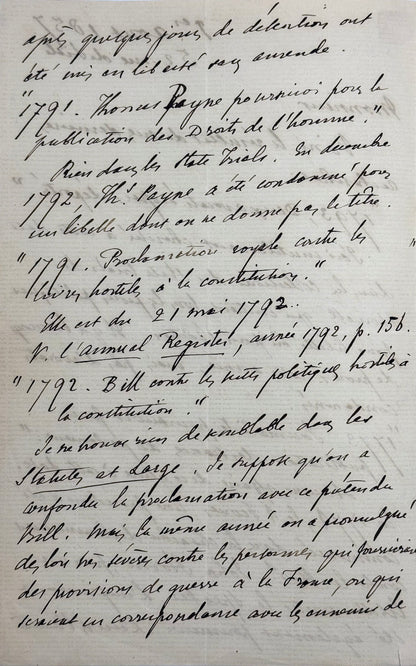 après quelques jours de détention ont
été mis en liberté sans amende.
"1791. Thomas Payne poursuivi pour la
publication des Droits de l'homme."
Rien dans les State Trials. En décembre
1792 Ths. Payne a été condamné pour
un libelle dont on ne donne pas le titre.
"1791. Proclamation royale contre les
livres hostiles à la constitution."
Elle est du 21 mai 1792.
V. l'Annual Register, année 1792, p. 156.
"1792. Bill contre les actes politiques hostiles à
la constitution."
Je ne trouve rien de semblable dans les
Statutes at Large. Je suppose qu'on a
confondu la proclamation avec ce prétendu
Bill. Mais la même année on a promulgué
des lois très sévères contre les personnes qui fourniraient
des provisions de guerre à la France, ou qui
seraient en correspondance avec les ennemis de